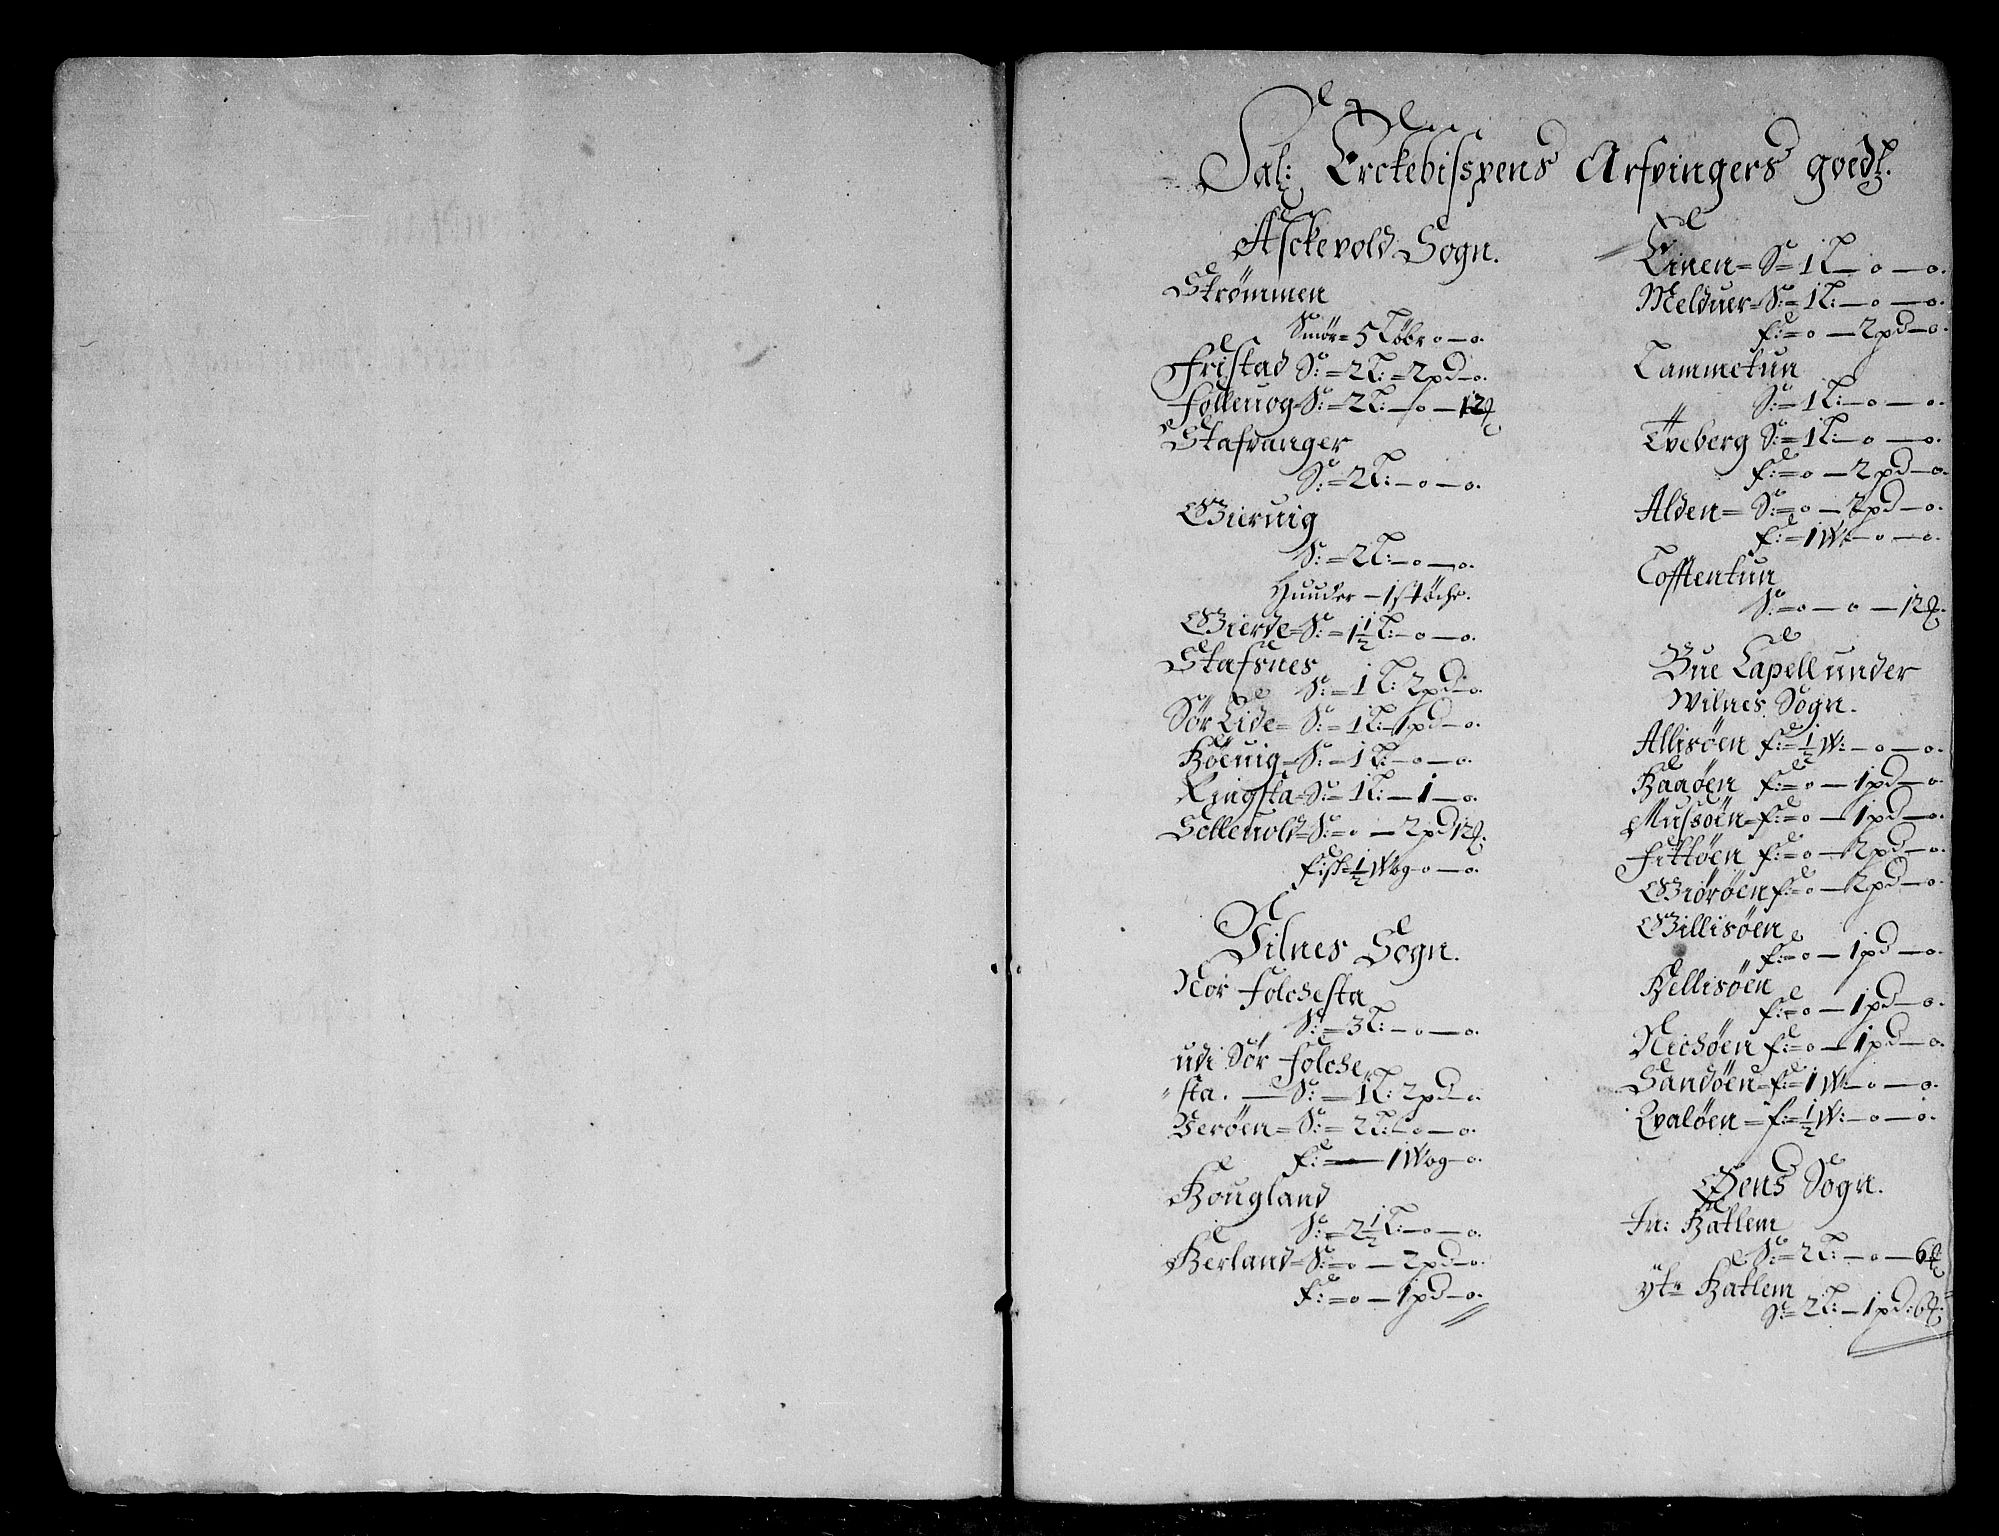 Sal: Erckebispens Arfvingers goedz.
Askevold Sogn.
Strømmen
Smør= 5 Løbr o — o.
Fristad S:= 2 L:= 2 pd — o.
Follevog S:= 2 L: — o — 12
Stafvanger
S:= 2 L: — o — o.
Giervig
S:= 2 L: — o — o.
Huuder — 1 støche.
Gierde= S:= 1½ L: — o — o.
Stafsnes
S:= 1 L: 2 pd — o.
Sør Lide= S:= 1 L: — 1 pd — o.
Høevig= S:= 1 L: — o — o.
Ringsta= S:= 1 L: — 1 — o.
Sellevold= S:= o — 2 pd 12
Fisk= ½ Wog o — o.
Vilnes Sogn.
Nor Folchesta
S:= 3 L: — o — o.
udi Sør Folche
sta. — S: — 1 L: 2 pd — o.
Verøen= S:= 2 L: — o — o.
F:= — 1 Wog — o.
Hougland
S:= 2½ L: — o — o.
Herland= S:= o — 2 pd — o.
F:= o — 1 pd — o.
Einen= S:= 1 L — o — o.
Melduer= S:= 1 L: — o — o.
F:= o — 2 pd — o.
Tammetun
S:= 1 L: — o — o.
Tveberg S:= 1 L: — o — o.
F:= o — 2 pd — o.
Alden= S:= o — 2 pd — o.
F:= 1 W: — o — o.
Tofftentun
S:= o — o — 12
Bue Capell under
Wilnes Sogn.
Allisøen F:= ½ W: — o — o.
Haaøen F:= o — 1 pd — o.
Musøen= F:= o — 1 pd — o.
Fittøen F:= o — 2 pd — o.
Giørøen F:= o — 2 pd — o.
Gillisøen
F:= o — 1 pd — o.
Hellisøen
F:= o — 1 pd — o.
Nichøen F:= o — 1 pd — o.
Sandøen= F:= 1 W: — o — o.
Qvaløen= F:= ½ W: — o — o.
Øens Sogn.
In: Hatlem
S:= 2 L: — o — 6
yt: Hatlem
S:= 2 L: — 1 pd: 6